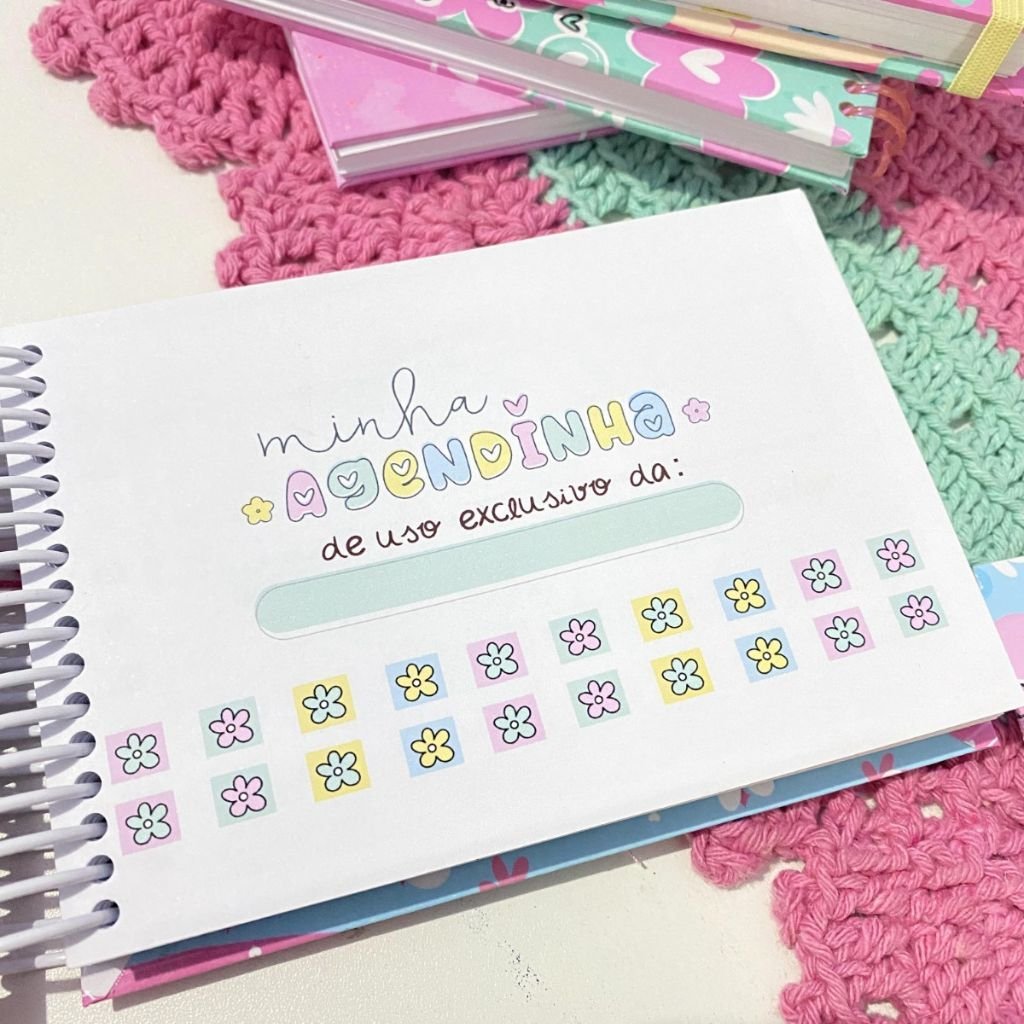 minha
AGENDINHA
de uso exclusivo da: